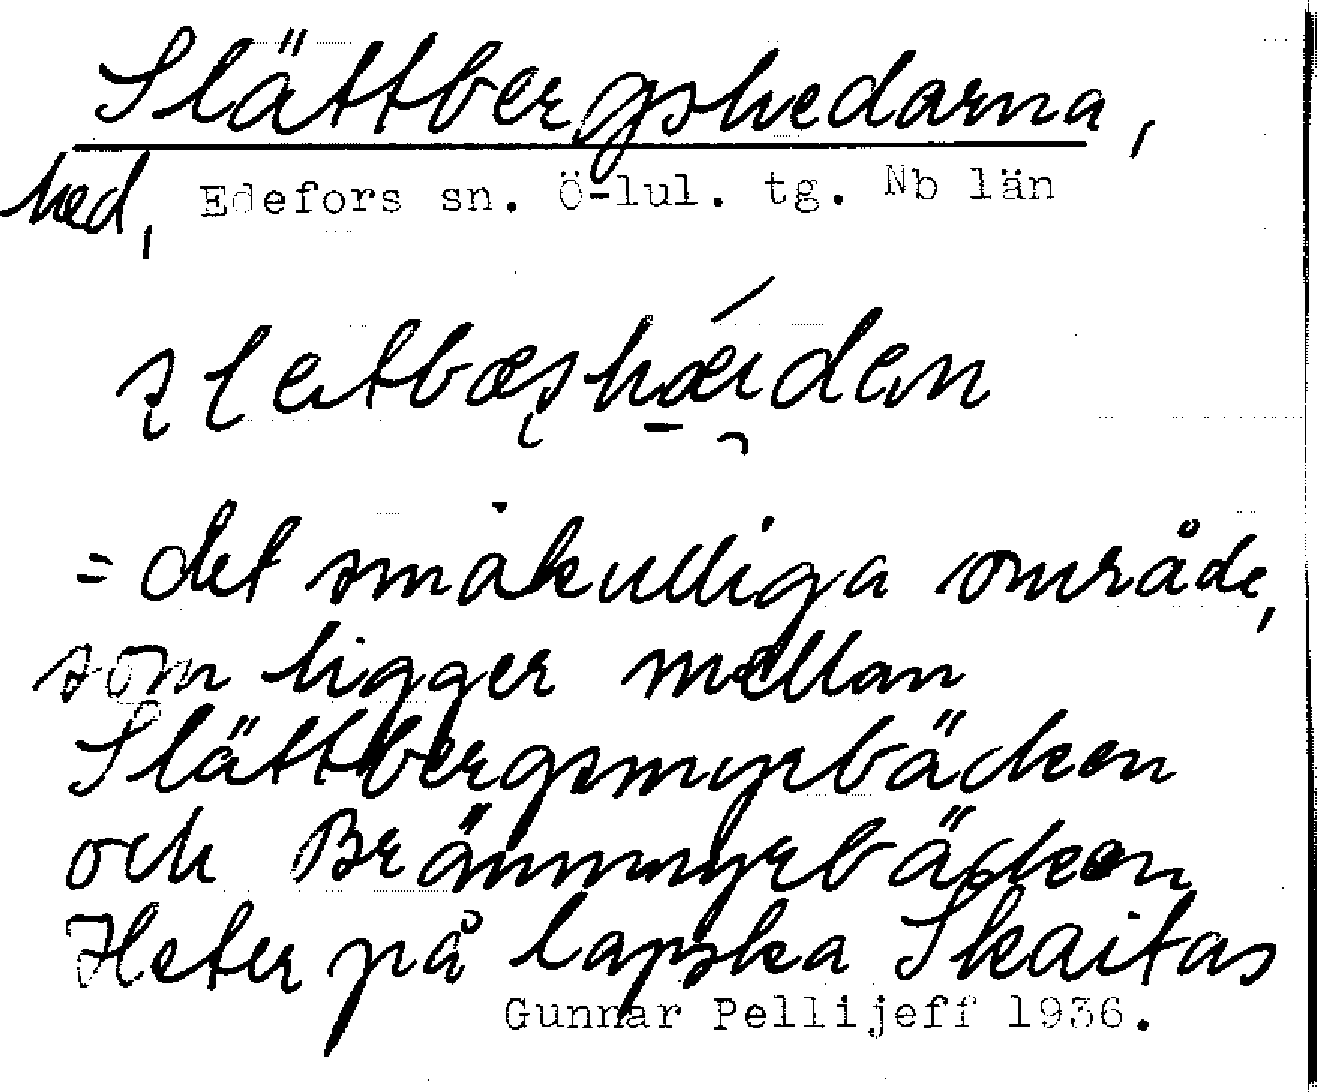 Slättbergshedarna,
hed, Edefors sn. Ö-lul. tg. Nb län
= det småkulliga område,
som ligger mellan
Slättbergsmyrbäcken
och Brännmyrbäcken
Heter på lapska Skaitas
Gunnar Pellijeff 1936.